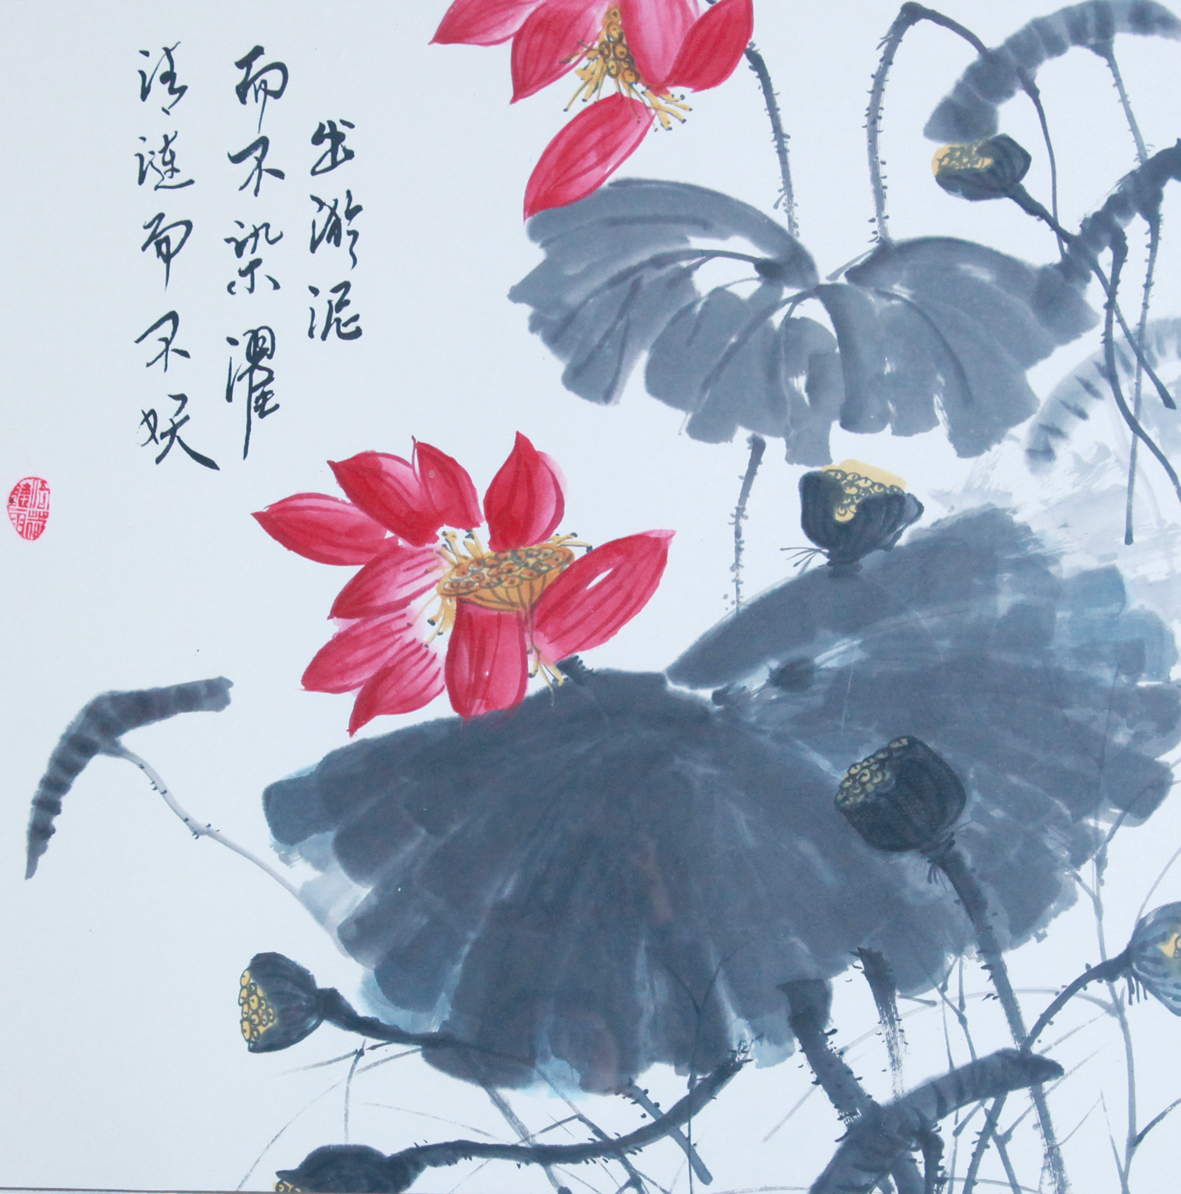 出淤泥
而不染濯
清漣而不妖